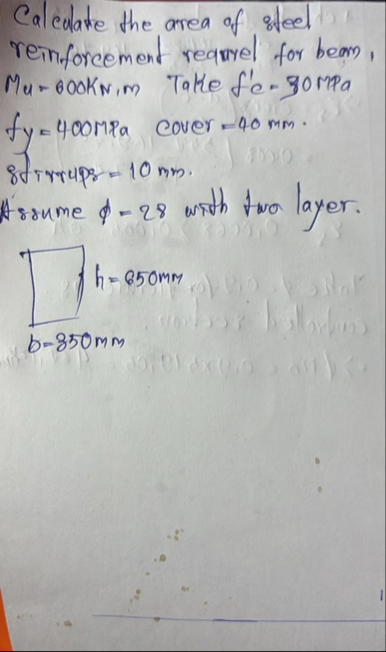 Calculate the area of steel
reinforcement required for beam,
Mu = 600KN.m Take f'c = 30MPa
fy = 400MPa cover = 40 mm.
stirrups = 10 mm.
Assume ϕ = 28 with two layer.
h = 650mm
b = 350mm